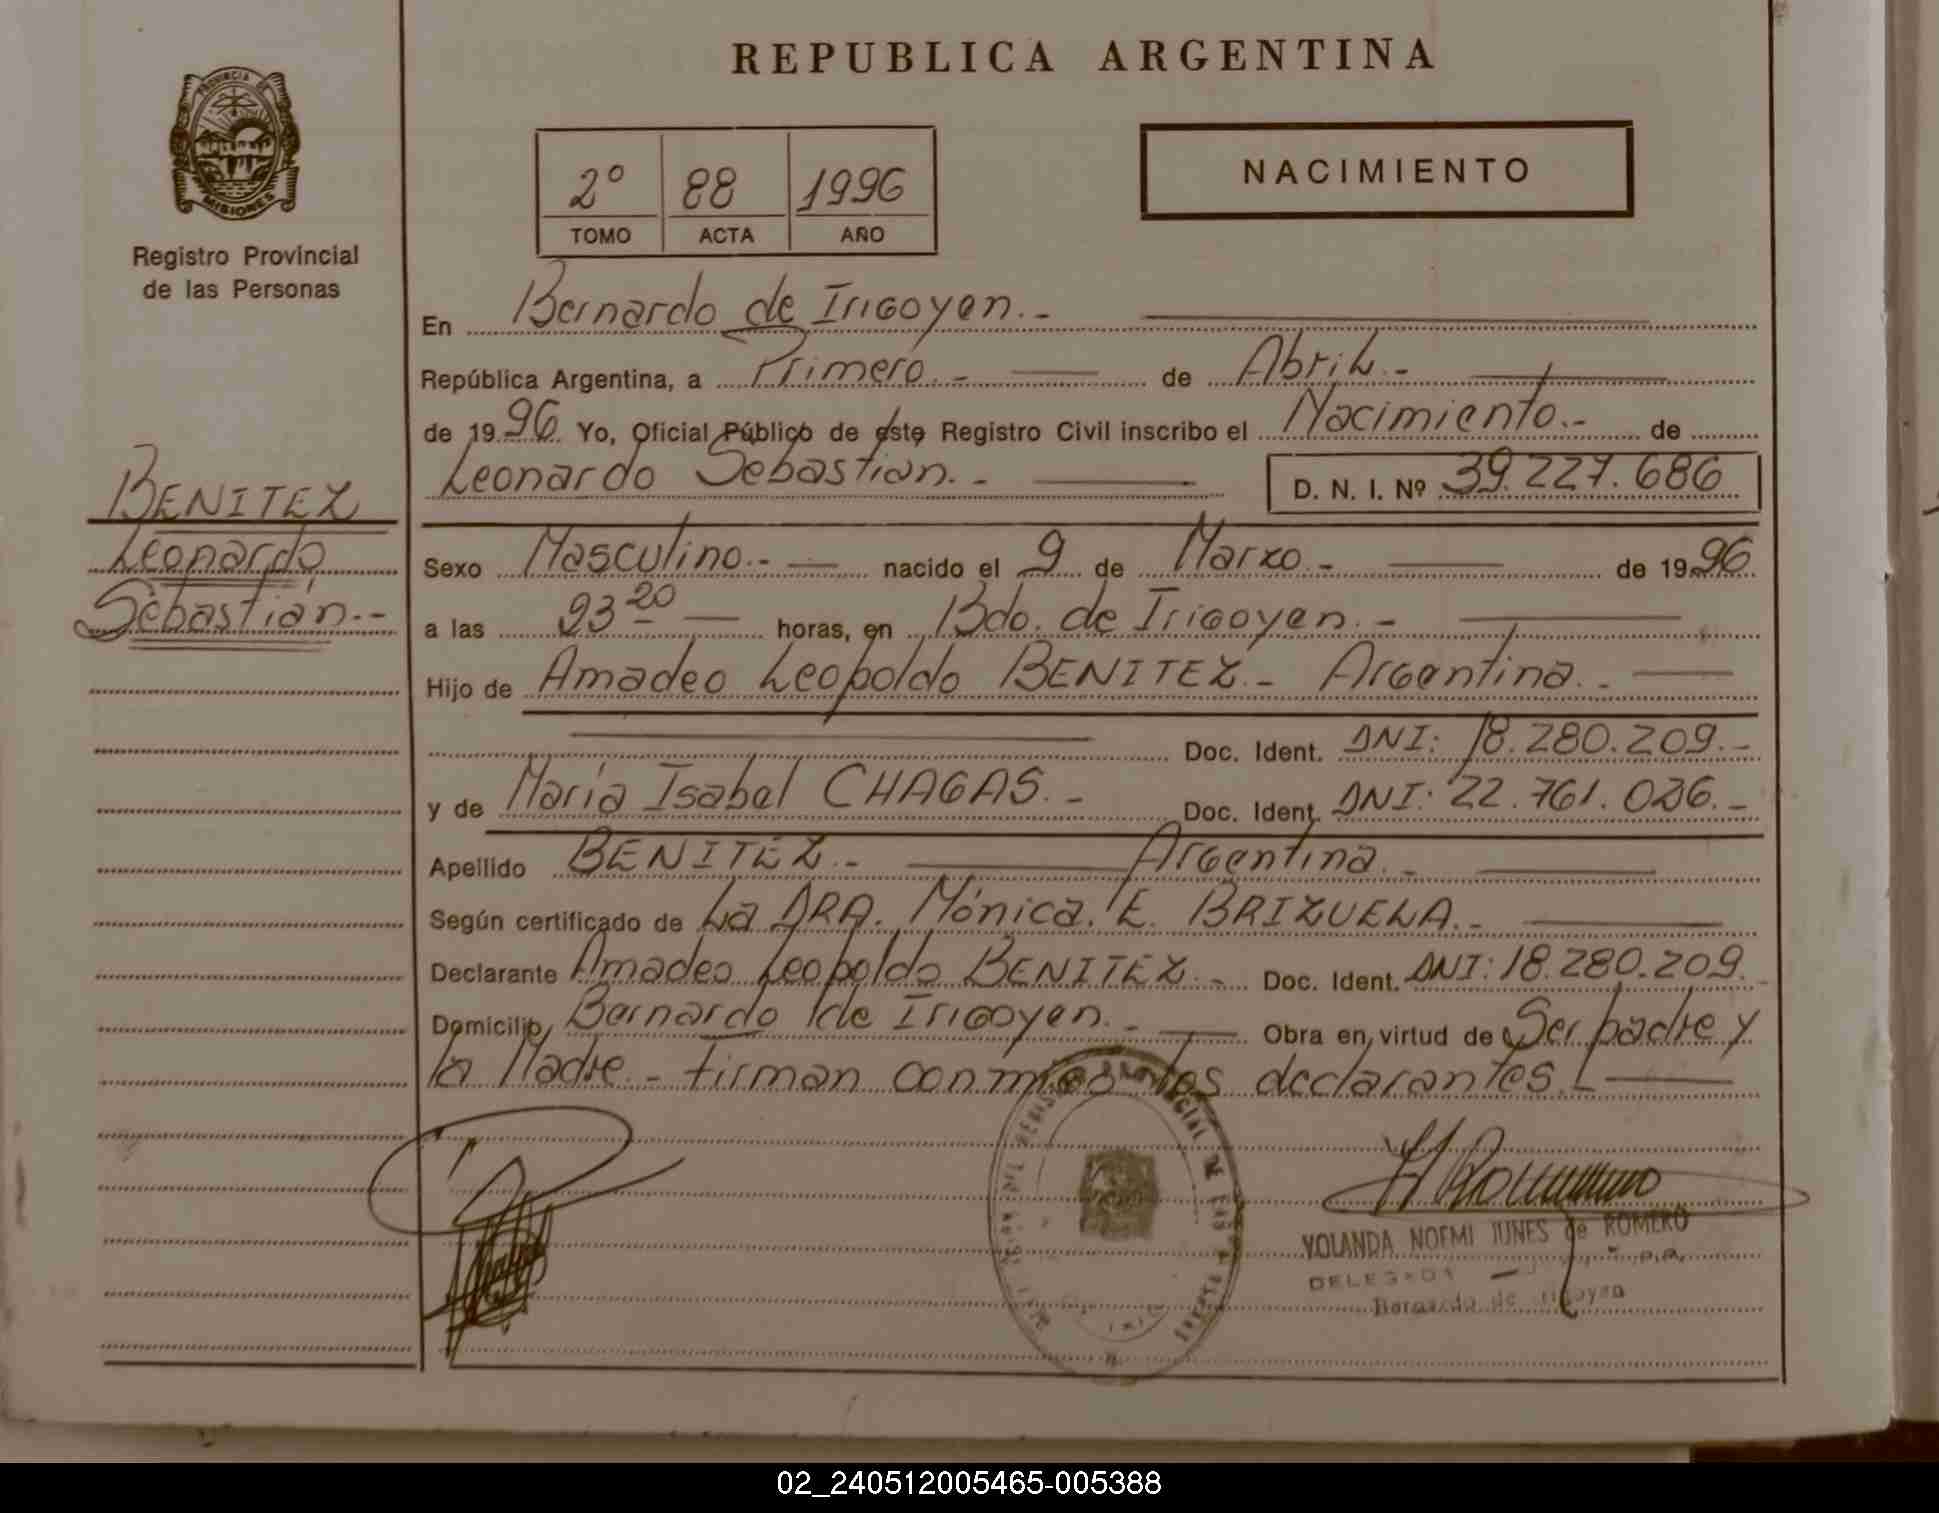 REPUBLICA ARGENTINA
PROVINCIA DE
MISIONES
Registro Provincial
de las Personas
2º 88 1996
TOMO ACTA AÑO
NACIMIENTO
En Bernardo de Irigoyen.-
República Argentina, a Primero.- de Abril.-
de 1996. Yo, Oficial Público de este Registro Civil inscribo el Nacimiento.- de
Leonardo Sebastian.- D. N. I. Nº 39.227.686
BENITEZ
Leonardo
Sebastián.-
Sexo Masculino.- nacido el 9 de Marzo.- de 1996
a las 23 20 horas, en Bdo. de Irigoyen.-
Hijo de Amadeo Leopoldo BENITEZ.- Argentina.-
Doc. Ident. DNI: 18.280.209.-
y de María Isabel CHAGAS.- Doc. Ident. DNI: 22.761.036.-
Apellido BENITEZ.- Argentina.-
Según certificado de La DRA. Mónica. E. BRIZUELA.-
Declarante Amadeo Leopoldo BENITEZ.- Doc. Ident. DNI: 18.280.209.-
Domicilio Bernardo de Irigoyen.- Obra en virtud de Ser padre y
la Madre.- firman conmigo los declarantes.-
REGISTRO PROVINCIAL DE LAS
YOLANDA NOEMI IUNES de ROMERO
DELEGADA
Bernardo de Irigoyen
02_240512005465-005388